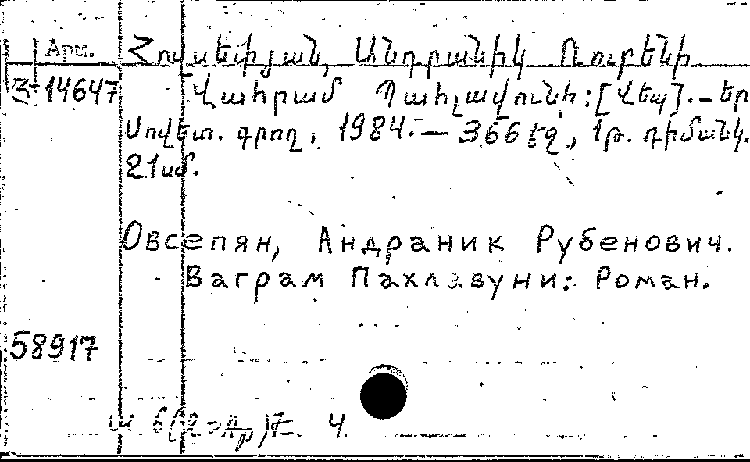 Арм. Հովսեփյան, Անդրանիկ Ռուբենի
Հ-14647 Վահրամ Պահլավունի: [Վեպ].— Եր
Սովետ. գրող, 1984.— 366 էջ, 1թ. դիմանկ.
21սմ.
Овсепян, Андраник Рубенович.
Ваграм Пахлавуни: Роман.
58917